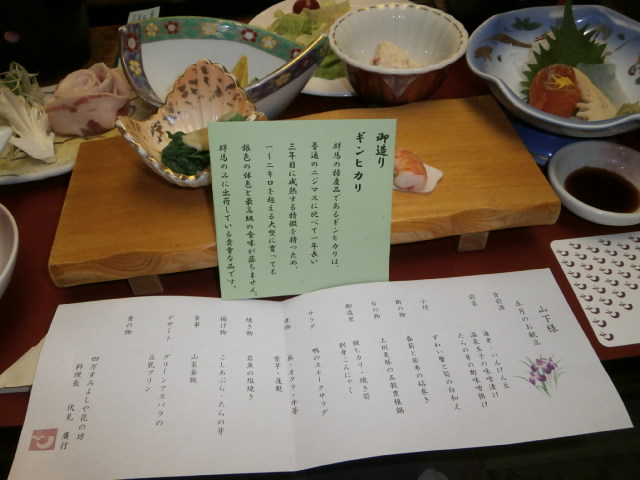 御造り
ギンヒカリ
群馬の特産品であるギンヒカリは、
普通のニジマスに比べて一年長い
三年目に成熟する特徴を持つため、
一〜二キロを超える大型に育っても
銀色の体色と最高級の食味が落ちません。
群馬のみに出荷している貴重な品です。
山下様
五月のお献立
食前酒
前菜
海老・いんげん・豆
温泉玉子の味噌漬け
たらの芽の味噌掛け
小付
ずわい蟹と筍の白和え
酢の物
春菊と若布の
台の物
上州麦豚の五穀豊穣鍋
御造里
銀ヒカリ・焼き筍
刺身こんにゃく
サラダ
鴨のスモークサラダ
煮物
蕪・オクラ・牛蒡
里芋・蓮麩
焼き物
岩魚の塩焼き
揚げ物
こしあぶら・たらの芽
食事
山菜釜飯
デザート
グリーンアスパラの
豆乳プリン
香の物
四万すみよしや花の坊
料理長
伏見 廣行